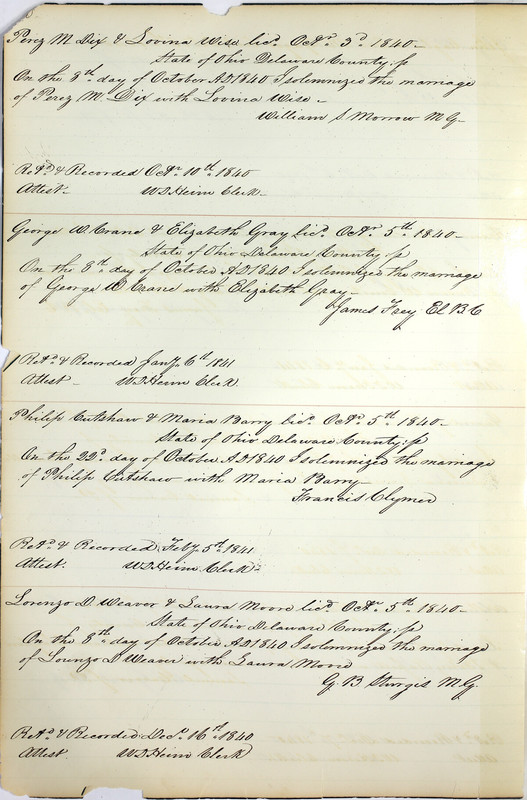 Perez M Dix & Lovina Wise licd. Octr. 3d. 1840-
State of Ohio Delaware County. ss
On the 8th day of October AD1840 I solemnized the marriage
of Perez M. Dix with Lovina Wise -
William S. Morrow M.G.
Retd. & Recorded Octr. 10th 1840
Attest- W D Heim Clerk-
George W. Crane & Elizabeth Gray licd. Octr. 5th 1840-
State of Ohio Delaware County ss
On the 8th day of October AD1840 I solemnized the marriage
of George W Crane with Elizabeth Gray-
James Frey El B.C
Retd. & Recorded Jany. 6th 1841
Attest - W D Heim Clerk
Philip Cutshaw & Maria Barry licd. Octr. 5th 1840-
State of Ohio Delaware County. ss
On the 22d. day of October AD1840 I solemnized the marriage
of Philip Cutshaw with Maria Barry-
Francis Clymer
Retd. & Recorded Feby. 5th 1841
Attest. W D Heim Clerk-
Lorenzo D. Weaver & Laura Moore licd. Octr. 5th 1840-
State of Ohio Delaware County. ss
On the 8th day of October AD1840 I solemnized the marriage
of Lorenzo D Weaver with Laura Moore
G. B Sturgis M.G.
Retd. & Recorded Decr. 16th 1840
Attest. W D Heim Clerk